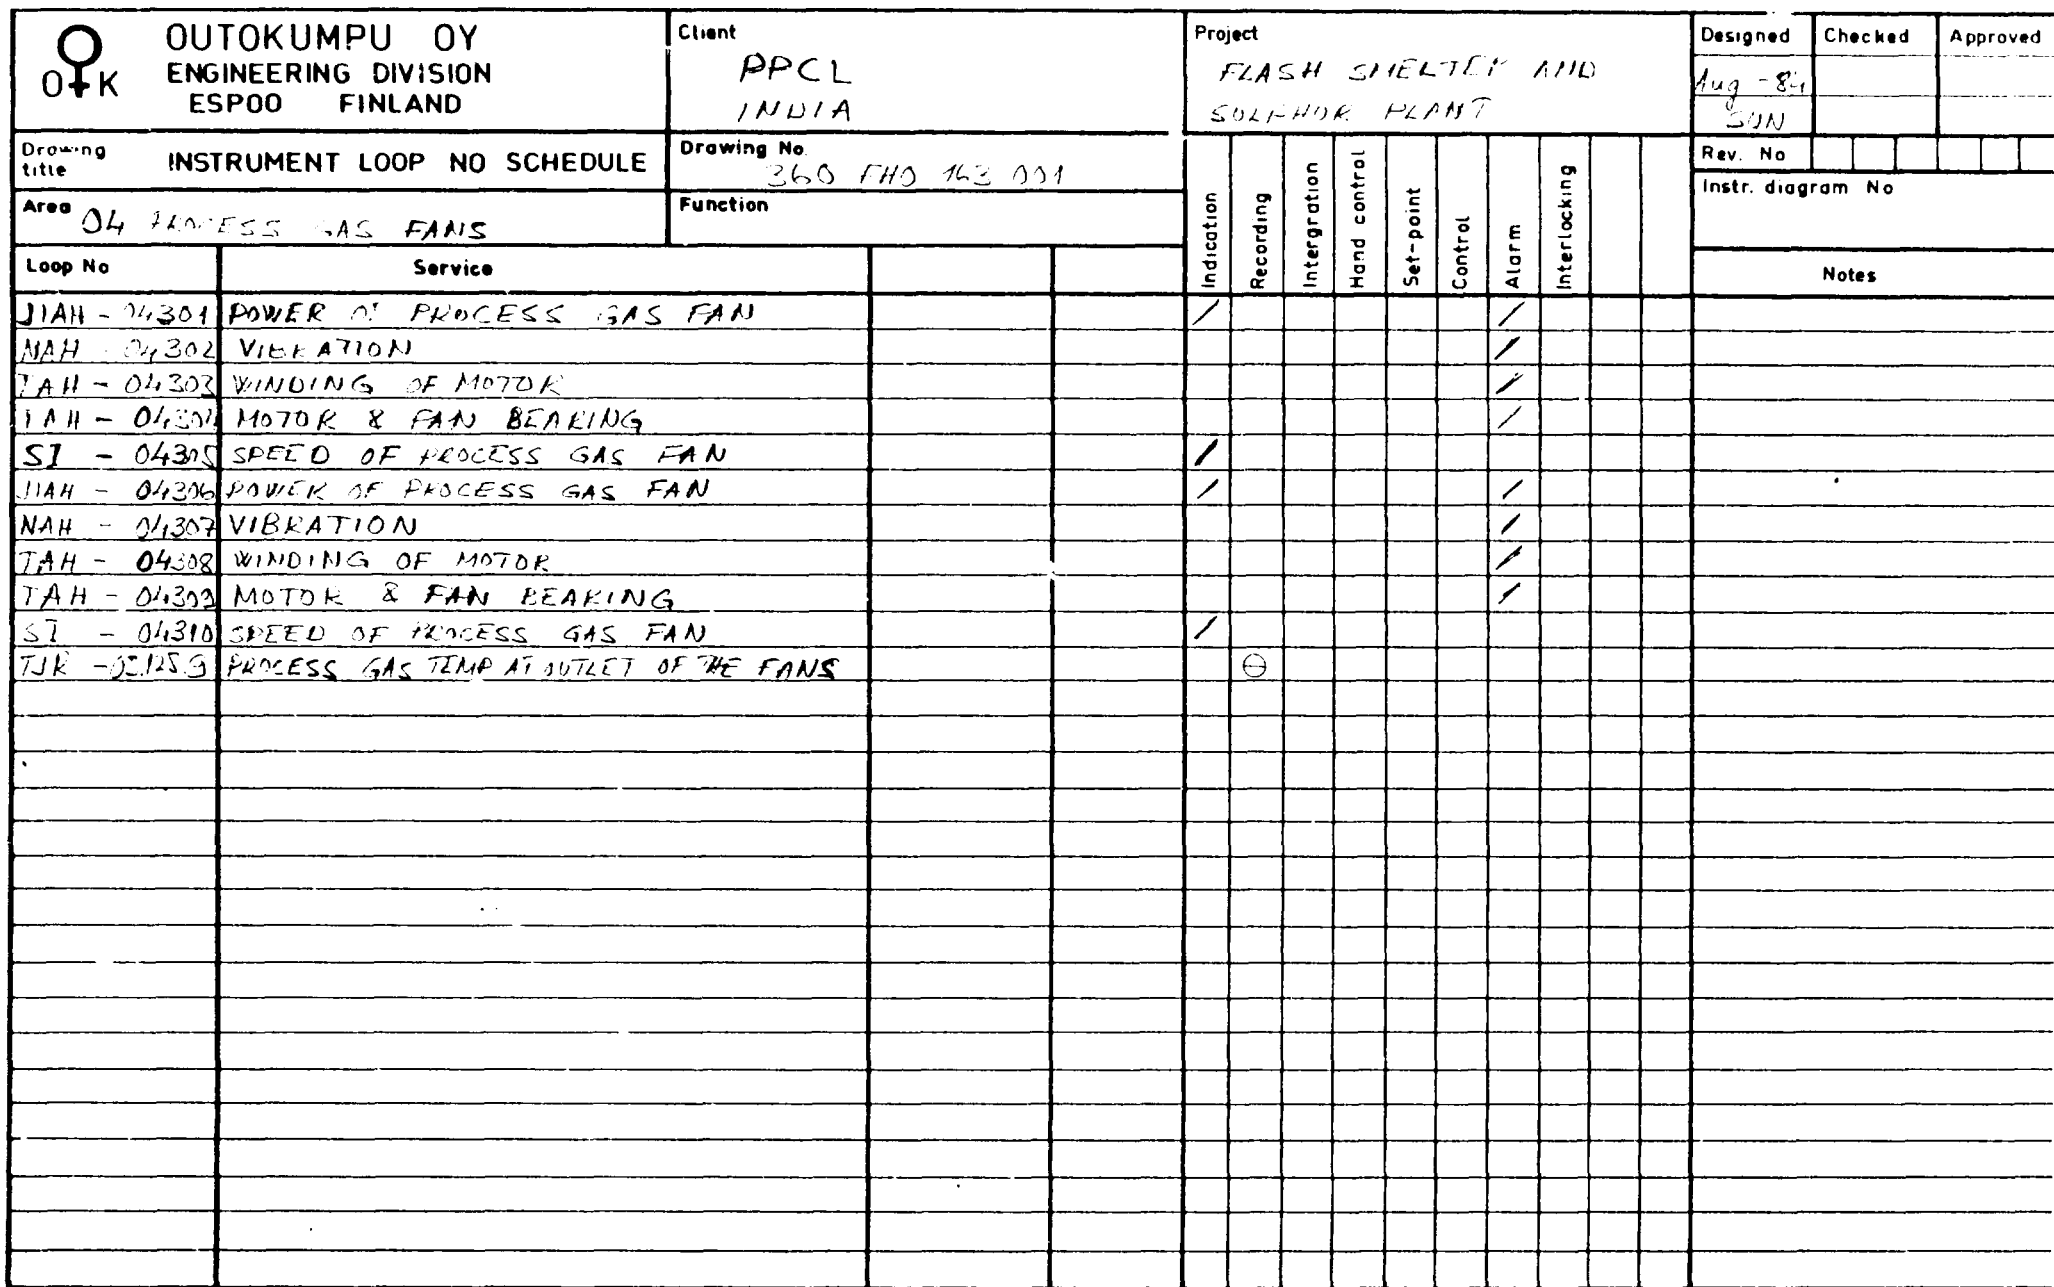 O K
OUTOKUMPU OY
ENGINEERING DIVISION
ESPOO FINLAND
Client
PPCL
INDIA
Project
FLASH SMELTER AND
SULPHUR PLANT
Designed Checked Approved
Aug - 84
Drawing title INSTRUMENT LOOP NO SCHEDULE
Drawing No
360 FHO 163 001
Rev. No
Instr. diagram No
Area 04 PROCESS GAS FANS
Function
Loop No Service Indication Recording Intergration Hand control Set-point Control Alarm Interlocking Notes
JIAH - 04301 POWER OF PROCESS GAS FAN / /
NAH - 04302 VIBRATION /
TAH - 04303 WINDING OF MOTOR /
TAH - 04304 MOTOR & FAN BEARING /
SI - 04305 SPEED OF PROCESS GAS FAN /
JIAH - 04306 POWER OF PROCESS GAS FAN / /
NAH - 04307 VIBRATION /
TAH - 04308 WINDING OF MOTOR /
TAH - 04309 MOTOR & FAN BEARING /
SI - 04310 SPEED OF PROCESS GAS FAN /
TJR PROCESS GAS TEMP AT OUTLET OF THE FANS